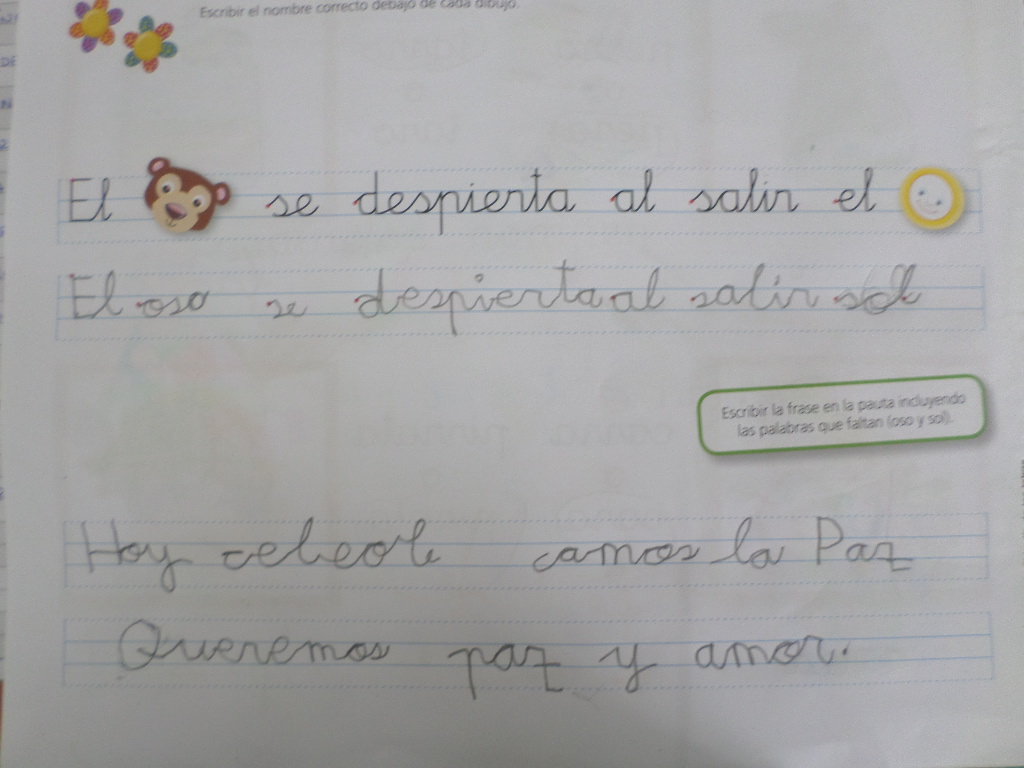 Escribir el nombre correcto debajo de cada dibujo.
El se despierta al salir el
El oso se despierta al salir sol
Escribir la frase en la pauta incluyendo
las palabras que faltan (oso y sol).
Hoy camos la Paz
Queremos paz y amor.